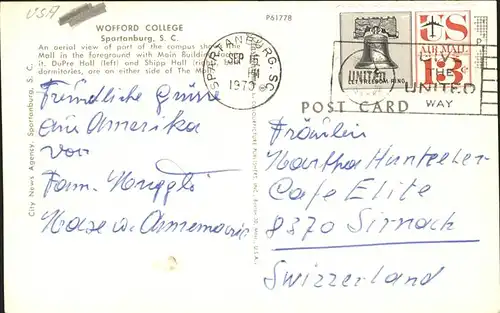 USA
WOFFORD COLLEGE
Spartanburg, S. C.
P61778
An aerial view of part of the campus shows the
Mall in the foreground with Main Building
it. DuPre Hall (left) and Shipp Hall
dormitories, are on either side of The Mall.
City News Agency, Spartanburg, S. C.
SPARTANBURG, SC
SEP
PM
1973
LET FREEDOM RING
US
AIR MAIL
13
UNITED
THE
UNITED
WAY
POST CARD
Freundliche Grüsse
aus Amerika
von
Fam.
und Annemarie
Fräulein
Martha
Cafe Elite
8370 Sirnach
Switzerland